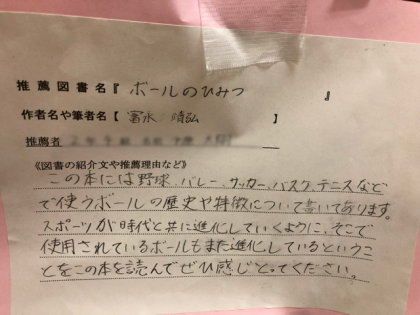 推薦図書名『 ボールのひみつ 』
作者名や筆者名【 冨水 晴弘 】
推薦者
《図書の紹介文や推薦理由など》
この本には野球、バレー、サッカー、バスケ、テニスなど
で使うボールの歴史や特徴について書いてあります。
スポーツが時代と共に進化していくように、そこで
使用されているボールもまた進化しているというこ
とをこの本を読んでぜひ感じとってください。